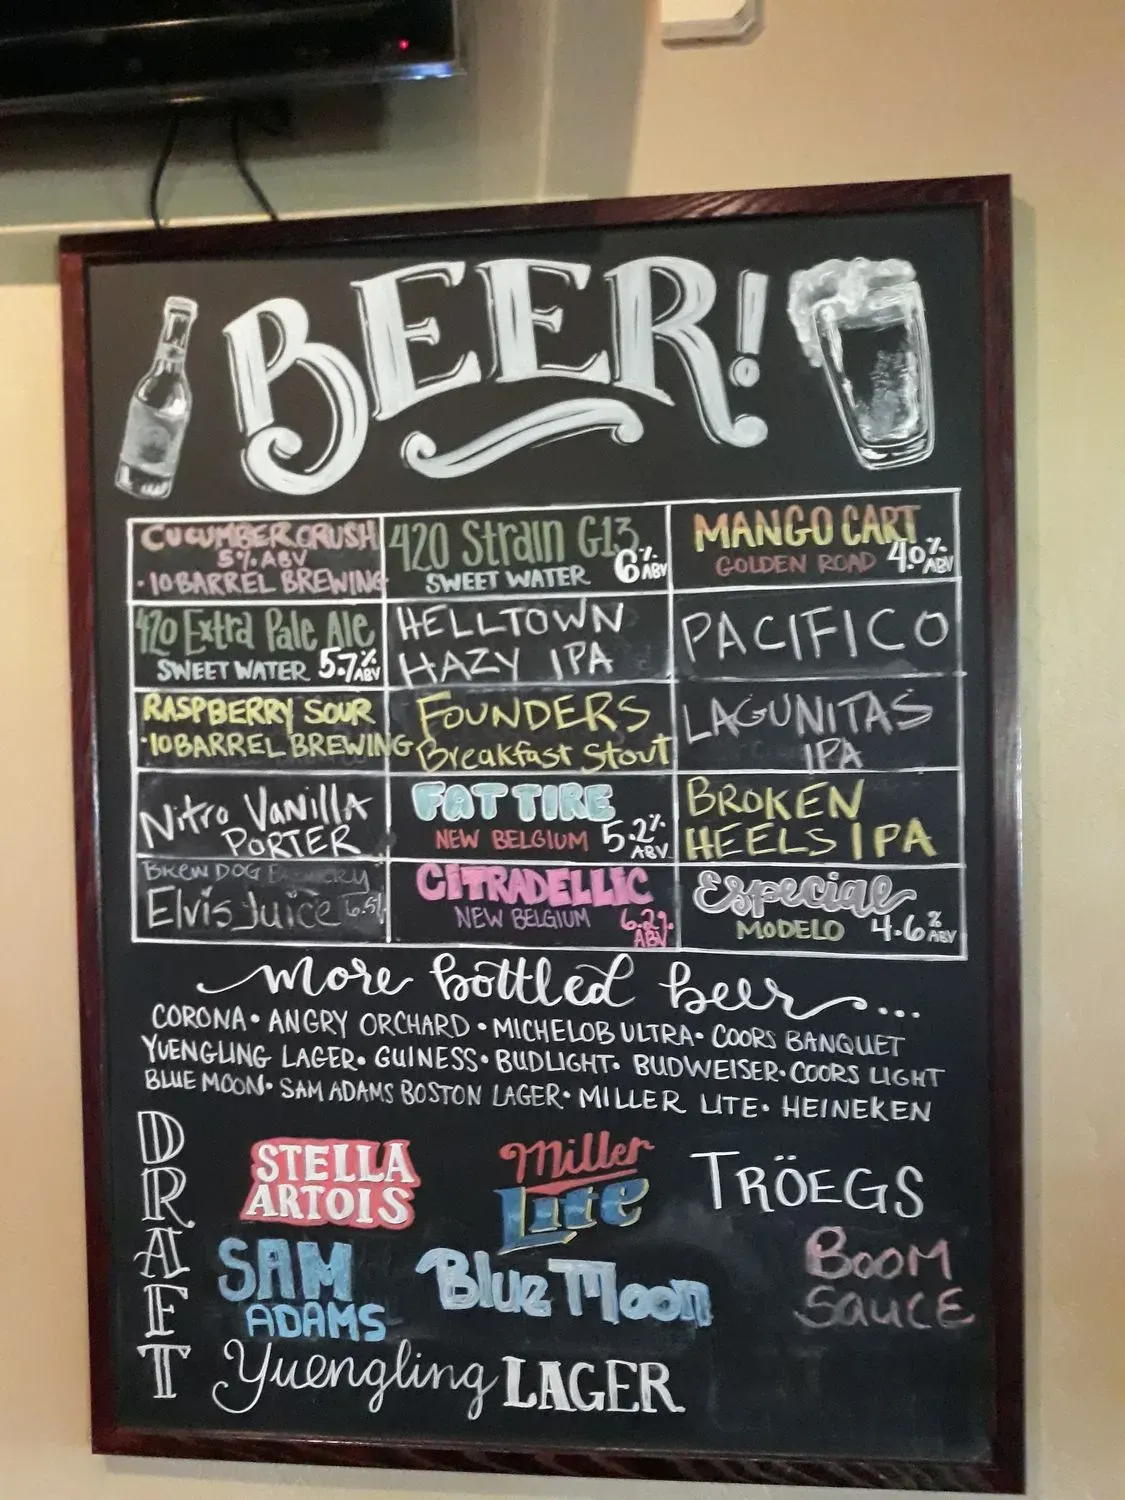 BEER!
CUCUMBER CRUSH
5% ABV
• 10 BARREL BREWING
420 Strain G13
SWEET WATER 6% ABV
MANGO CART
GOLDEN ROAD 4.0% ABV
420 Extra Pale Ale
SWEET WATER 5.7% ABV
HELLTOWN
HAZY IPA
PACIFICO
RASPBERRY SOUR
•10 BARREL BREWING
FOUNDERS
Breakfast Stout
LAGUNITAS
IPA
Nitro Vanilla
PORTER
FAT TIRE
NEW BELGIUM 5.2% ABV
BROKEN
HEELS IPA
BREW DOG
Elvis Juice 6.5%
CITRADELLIC
NEW BELGIUM 6.2% ABV
Especial
MODELO 4.6% ABV
more bottled beer...
CORONA • ANGRY ORCHARD • MICHELOB ULTRA • COORS BANQUET
YUENGLING LAGER • GUINESS • BUDLIGHT • BUDWEISER • COORS LIGHT
BLUE MOON • SAM ADAMS BOSTON LAGER • MILLER LITE • HEINEKEN
DRAFT
STELLA
ARTOIS
Miller
Lite
TRÖEGS
SAM
ADAMS
Blue Moon
BOOM
SAUCE
Yuengling LAGER